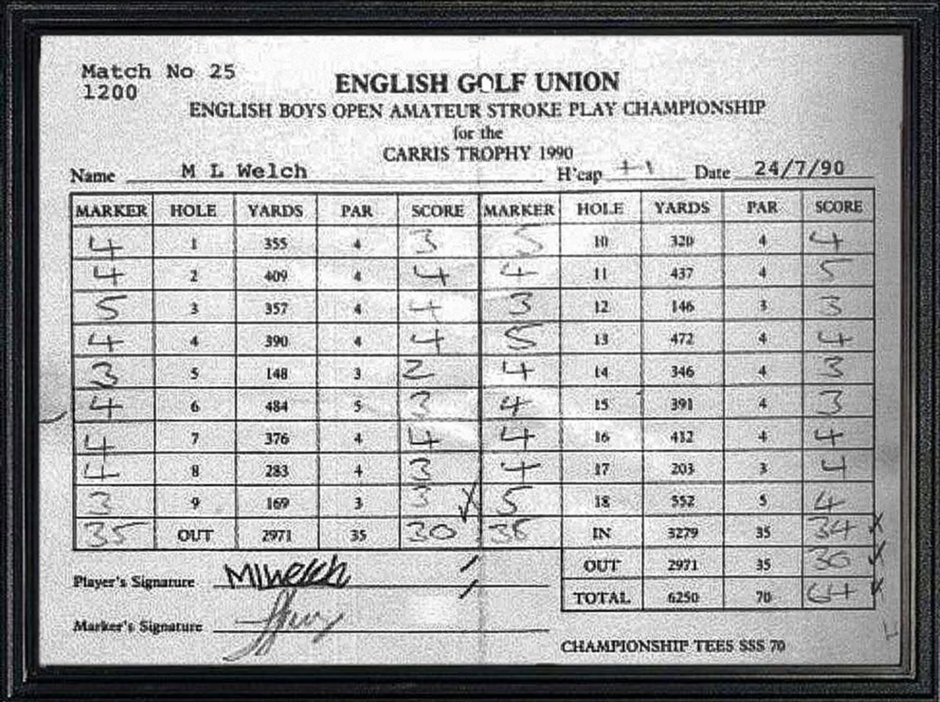 Match No 25
1200
ENGLISH GOLF UNION
ENGLISH BOYS OPEN AMATEUR STROKE PLAY CHAMPIONSHIP
for the
CARRIS TROPHY 1990
Name M L Welch H'cap +1 Date 24/7/90
MARKER HOLE YARDS PAR SCORE MARKER HOLE YARDS PAR SCORE
4 1 355 4 3 5 10 320 4 4
4 2 409 4 4 4 11 437 4 5
5 3 357 4 4 3 12 146 3 3
4 4 390 4 4 5 13 472 4 4
3 5 148 3 2 4 14 346 4 3
4 6 484 5 3 4 15 391 4 3
4 7 376 4 4 4 16 412 4 4
4 8 283 4 3 4 17 203 3 4
3 9 169 3 3 5 18 552 5 4
35 OUT 2971 35 30 36 IN 3279 35 34
OUT 2971 35 30
TOTAL 6250 70 64
Player's Signature MLWelch
Marker's Signature
CHAMPIONSHIP TEES SSS 70